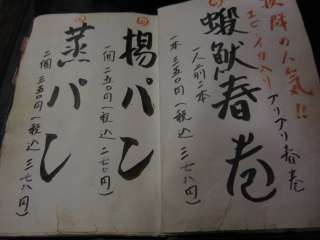 抜群の人気!!
エビ・イカペーアリアリ春巻
蝦鱿春巻
一人前二本
一本 三五〇円(税込 三七八円)
揚パン
一個 二五〇円(税込 二七〇円)
蒸パン
二個 三五〇円(税込 三七八円)